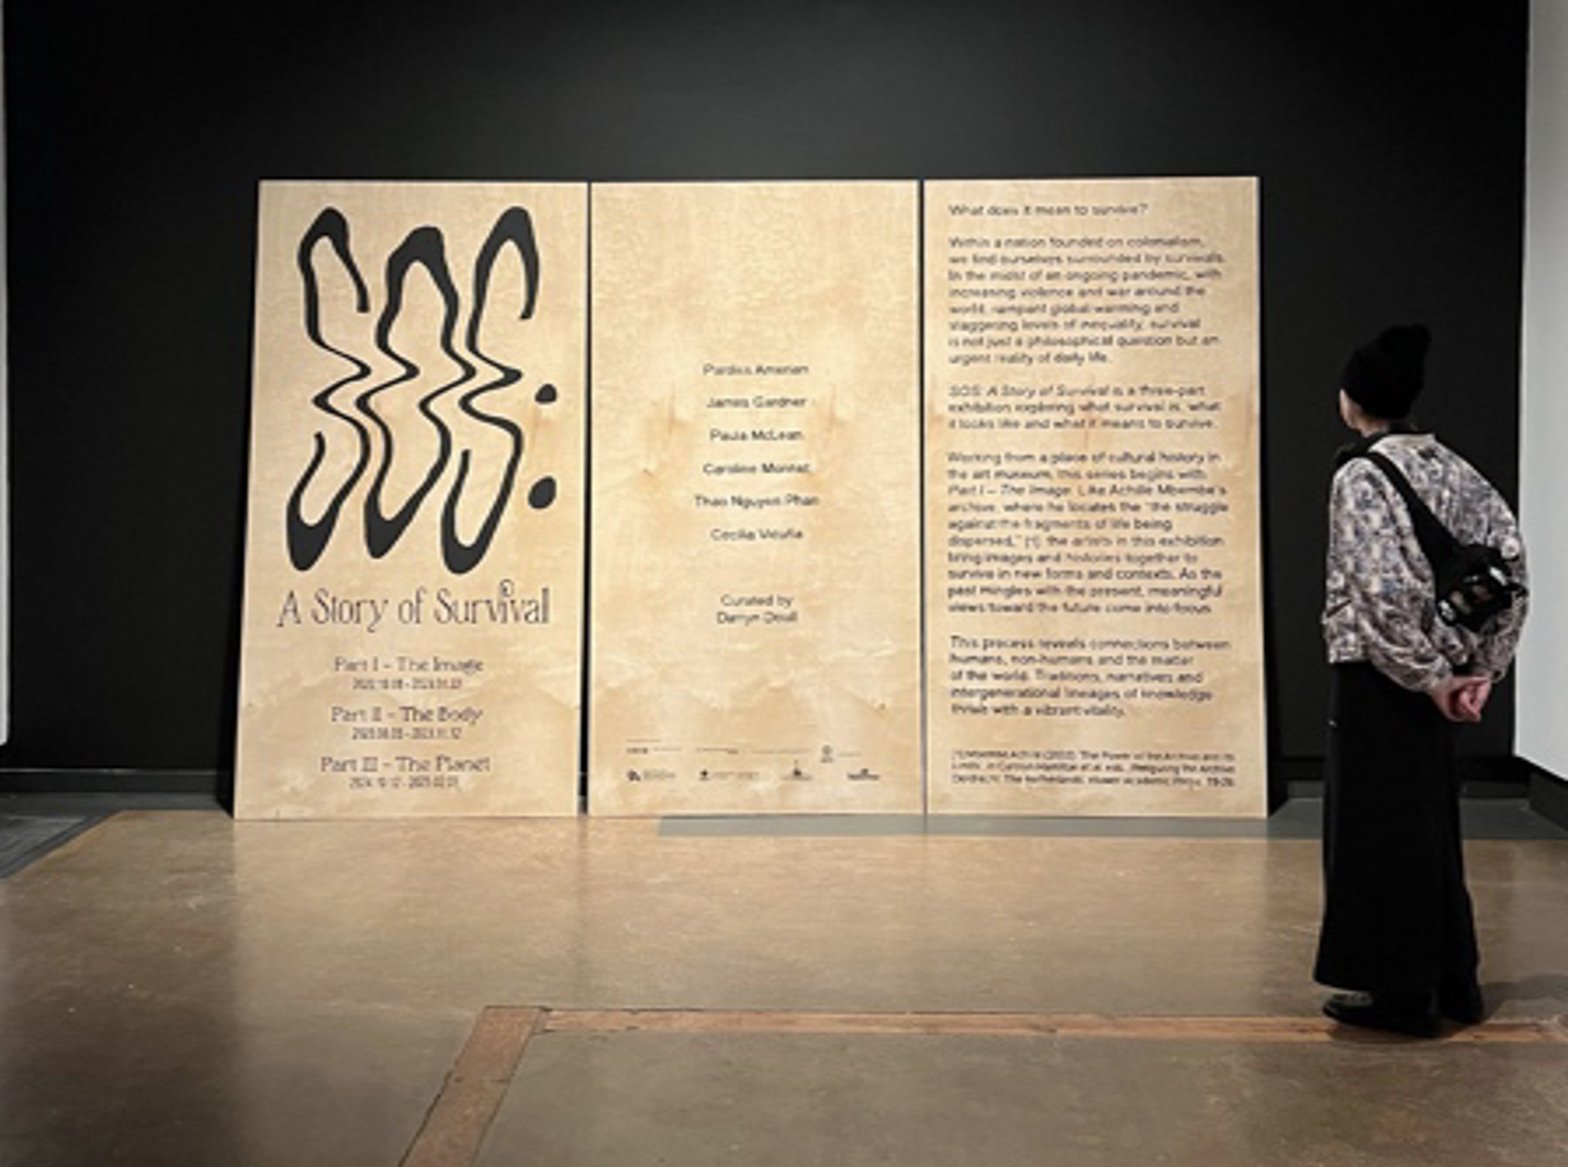 SOS:
A Story of Survival
Part I – The Image
Part II – The Body
Part III – The Planet
James Gardner
Paula McLean
Caroline Monnet
Thao Nguyen Phan
Cecilia Vicuña
Curated by
Darryn Doull
What does it mean to survive?
Within a nation founded on colonialism,
we find ourselves surrounded by survivals.
In the midst of an ongoing pandemic, with
increasing violence and war around the
world, rampant global warming and
staggering levels of inequality, survival
is not just a philosophical question but an
urgent reality of daily life.
SOS: A Story of Survival is a three-part
exhibition exploring what survival is, what
it looks like and what it means to survive.
Working from a place of cultural history in
the art museum, this series begins with
Part I – The Image. Like Achille Mbembe's
archive, where he locates the "the struggle
against the fragments of life being
dispersed," [1] the artists in this exhibition
bring images and histories together to
survive in new forms and contexts. As the
past mingles with the present, meaningful
views toward the future come into focus.
This process reveals connections between
humans, non-humans and the matter
of the world. Traditions, narratives and
intergenerational lineages of knowledge
thrive with a vibrant vitality.